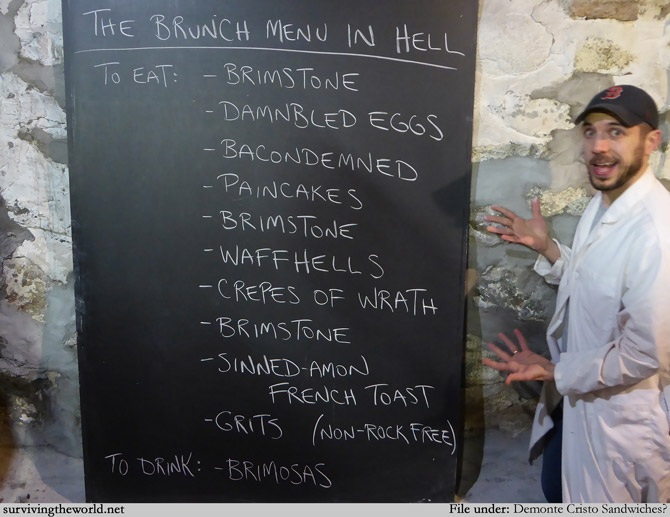 THE BRUNCH MENU IN HELL
TO EAT: - BRIMSTONE
- DAMNBLED EGGS
- BACONDEMNED
- PAINCAKES
- BRIMSTONE
- WAFFHELLS
- CREPES OF WRATH
- BRIMSTONE
- SINNED-AMON
FRENCH TOAST
- GRITS (NON-ROCK FREE)
TO DRINK: - BRIMOSAS
B
survivingtheworld.net
File under: Demonte Cristo Sandwiches?